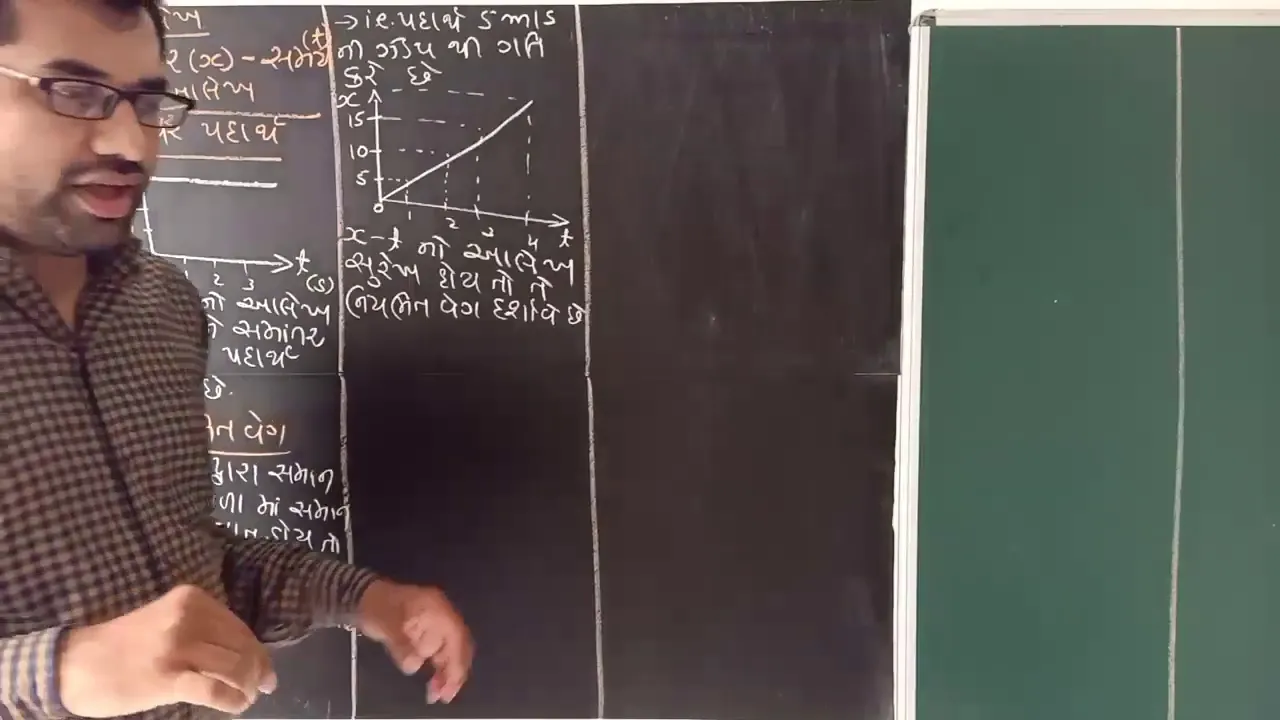 ર(x) – સમય(t)
આલેખ
પદાર્થ
t
(s)
2 3
નો આલેખ
ને સમાંતર
પદાર્થ
છે.
વેગ
દ્વારા સમાન
ળા માં સમાન
હોય તો
→ i.e. પદાર્થ 5 m/s
ની ઝડપ થી ગતિ
કરે છે
x
15
10
5
0
1 2 3 4 t
x – t નો આલેખ
સુરેખ હોય તો તે
નિયમિત વેગ દર્શાવે છે